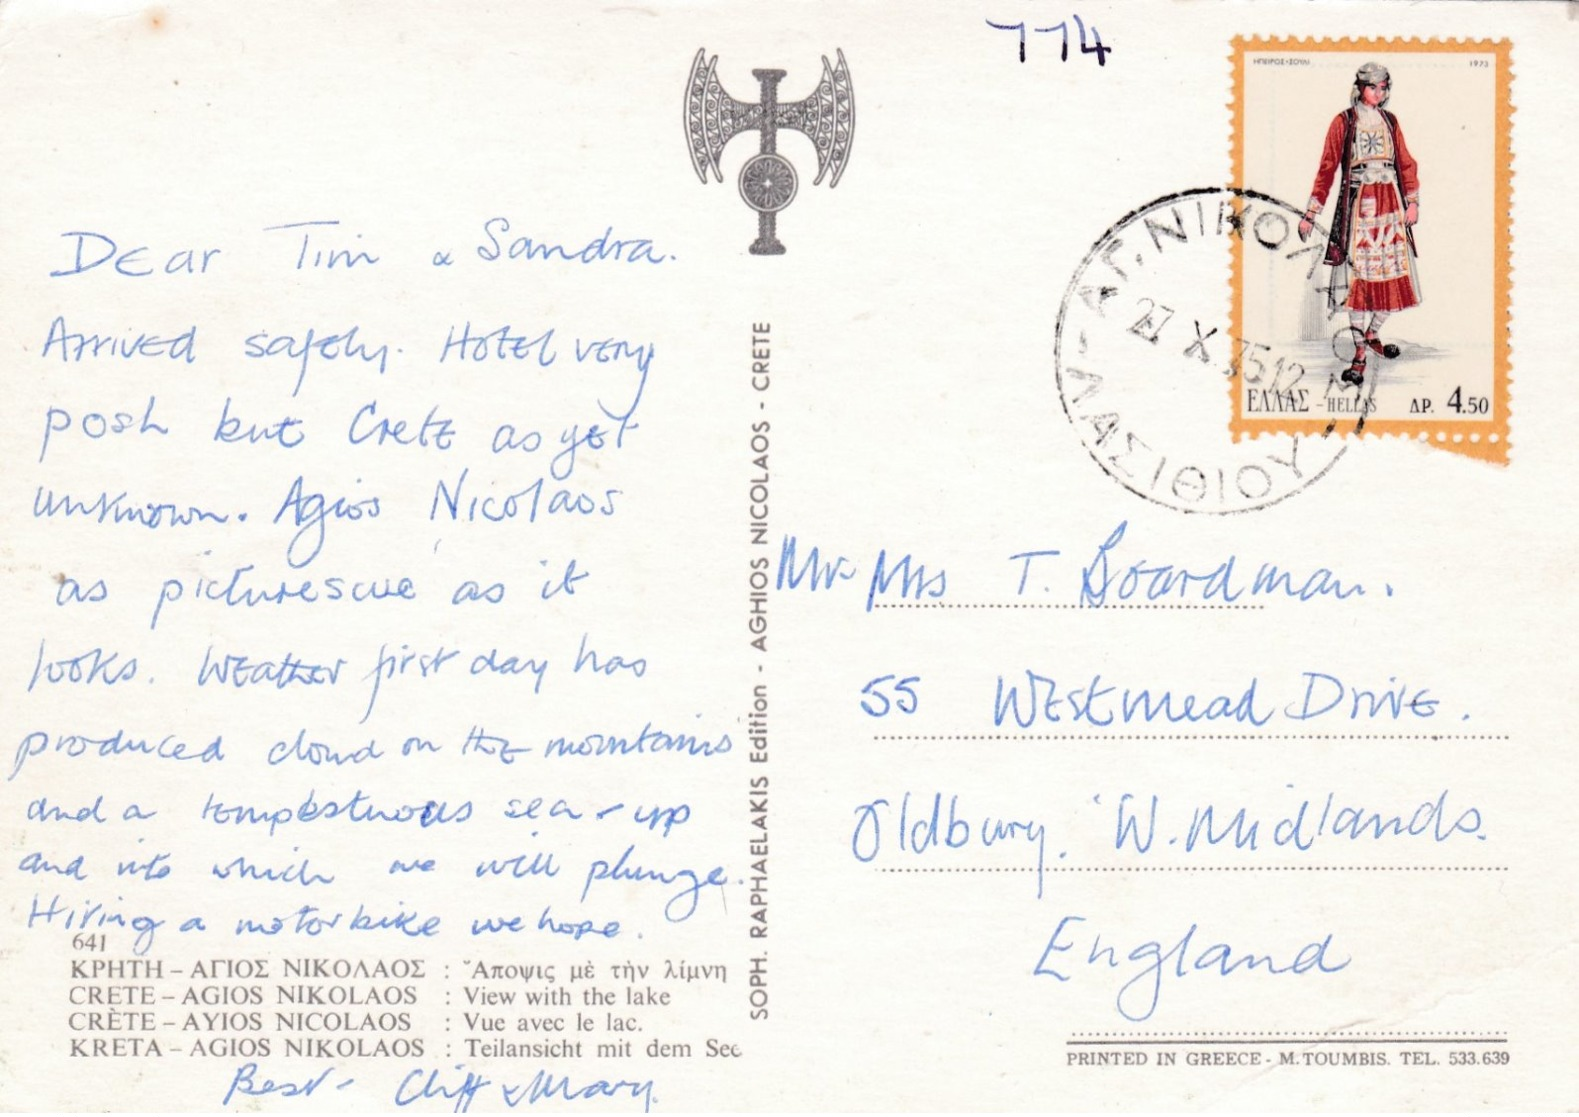 774
ΗΠΕΙΡΟΣ-ΣΟΥΛΙ 1973
ΕΛΛΑΣ - HELLAS ΔΡ. 4.50
ΑΓ. ΝΙΚΟΛΑΟΣ
ΛΑΣΙΘΙΟΥ
27 X 75 12
Dear Tim & Sandra.
Arrived safely. Hotel very
posh but Crete as yet
unknown. Agios Nicolaos
as picturescue as it
looks. Weather first day has
produced cloud on the mountains
and a tempestuous sea - up
and into which we will plunge.
Hiring a motorbike we hope.
641
ΚΡΗΤΗ – ΑΓΙΟΣ ΝΙΚΟΛΑΟΣ : Ἄποψις μὲ τὴν λίμνη
CRETE – AGIOS NIKOLAOS : View with the lake
CRÈTE – AYIOS NICOLAOS : Vue avec le lac.
KRETA – AGIOS NIKOLAOS : Teilansicht mit dem See
Best - Cliff & Mary.
SOPH. RAPHAELAKIS Edition - AGHIOS NICOLAOS - CRETE
Mr Mrs T. Boardman.
55 Westmead Drive.
Oldbury. W. Midlands.
England
PRINTED IN GREECE - M. TOUMBIS. TEL. 533.639